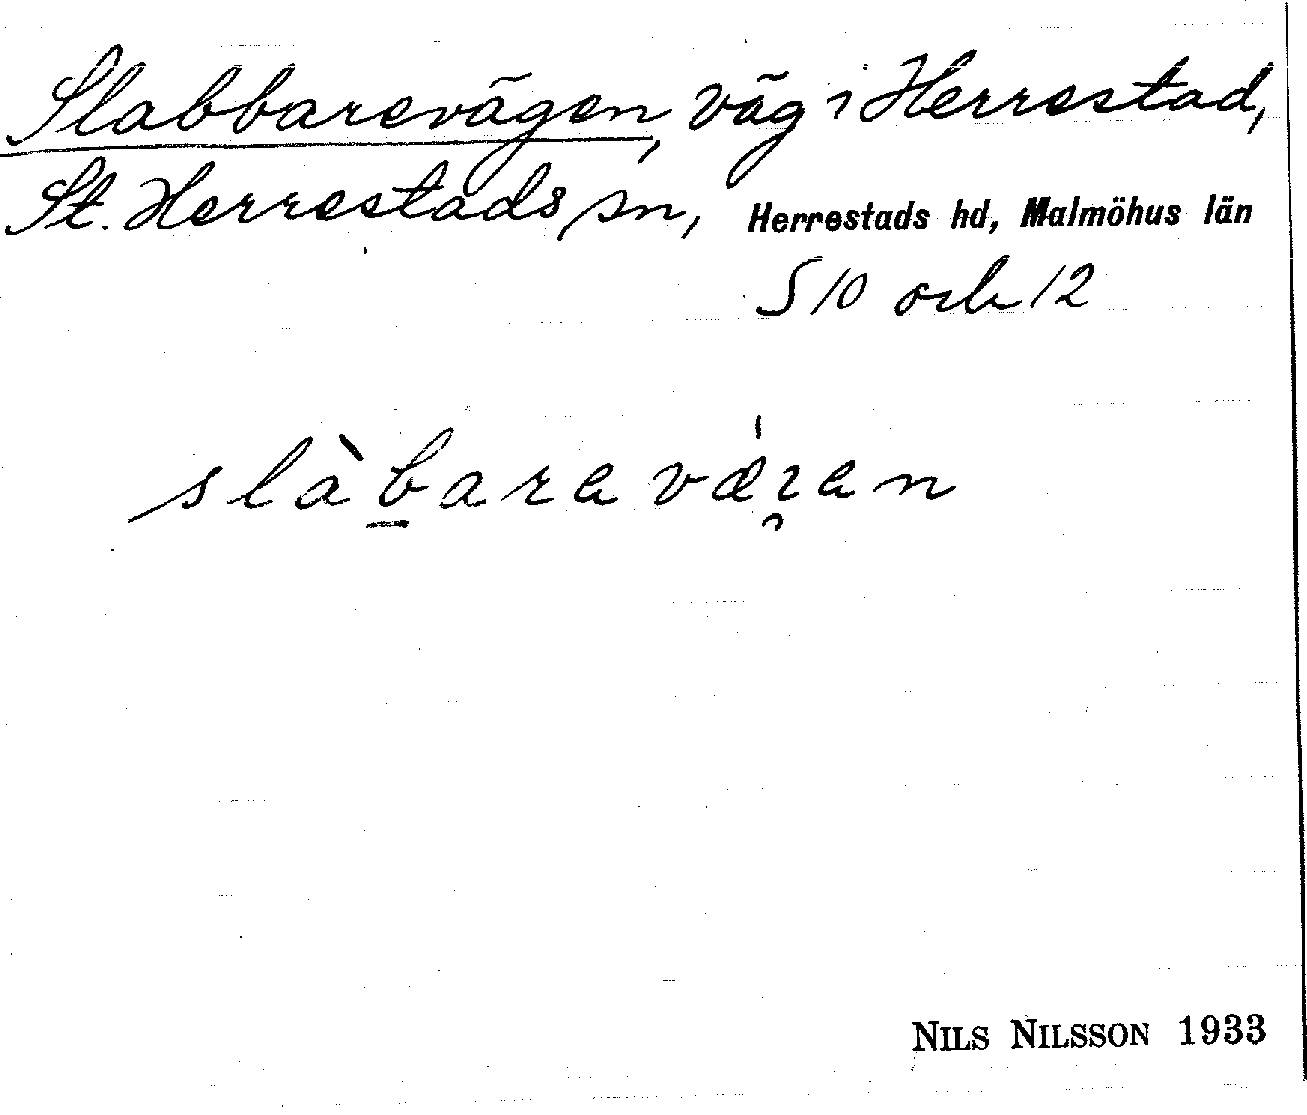 Slabbarevägen, väg i Herrestad,
St. Herrestads sn, Herrestads hd, Malmöhus län
S 10 och 12
slàb̲aravǽɪ̯an
NILS NILSSON 1933